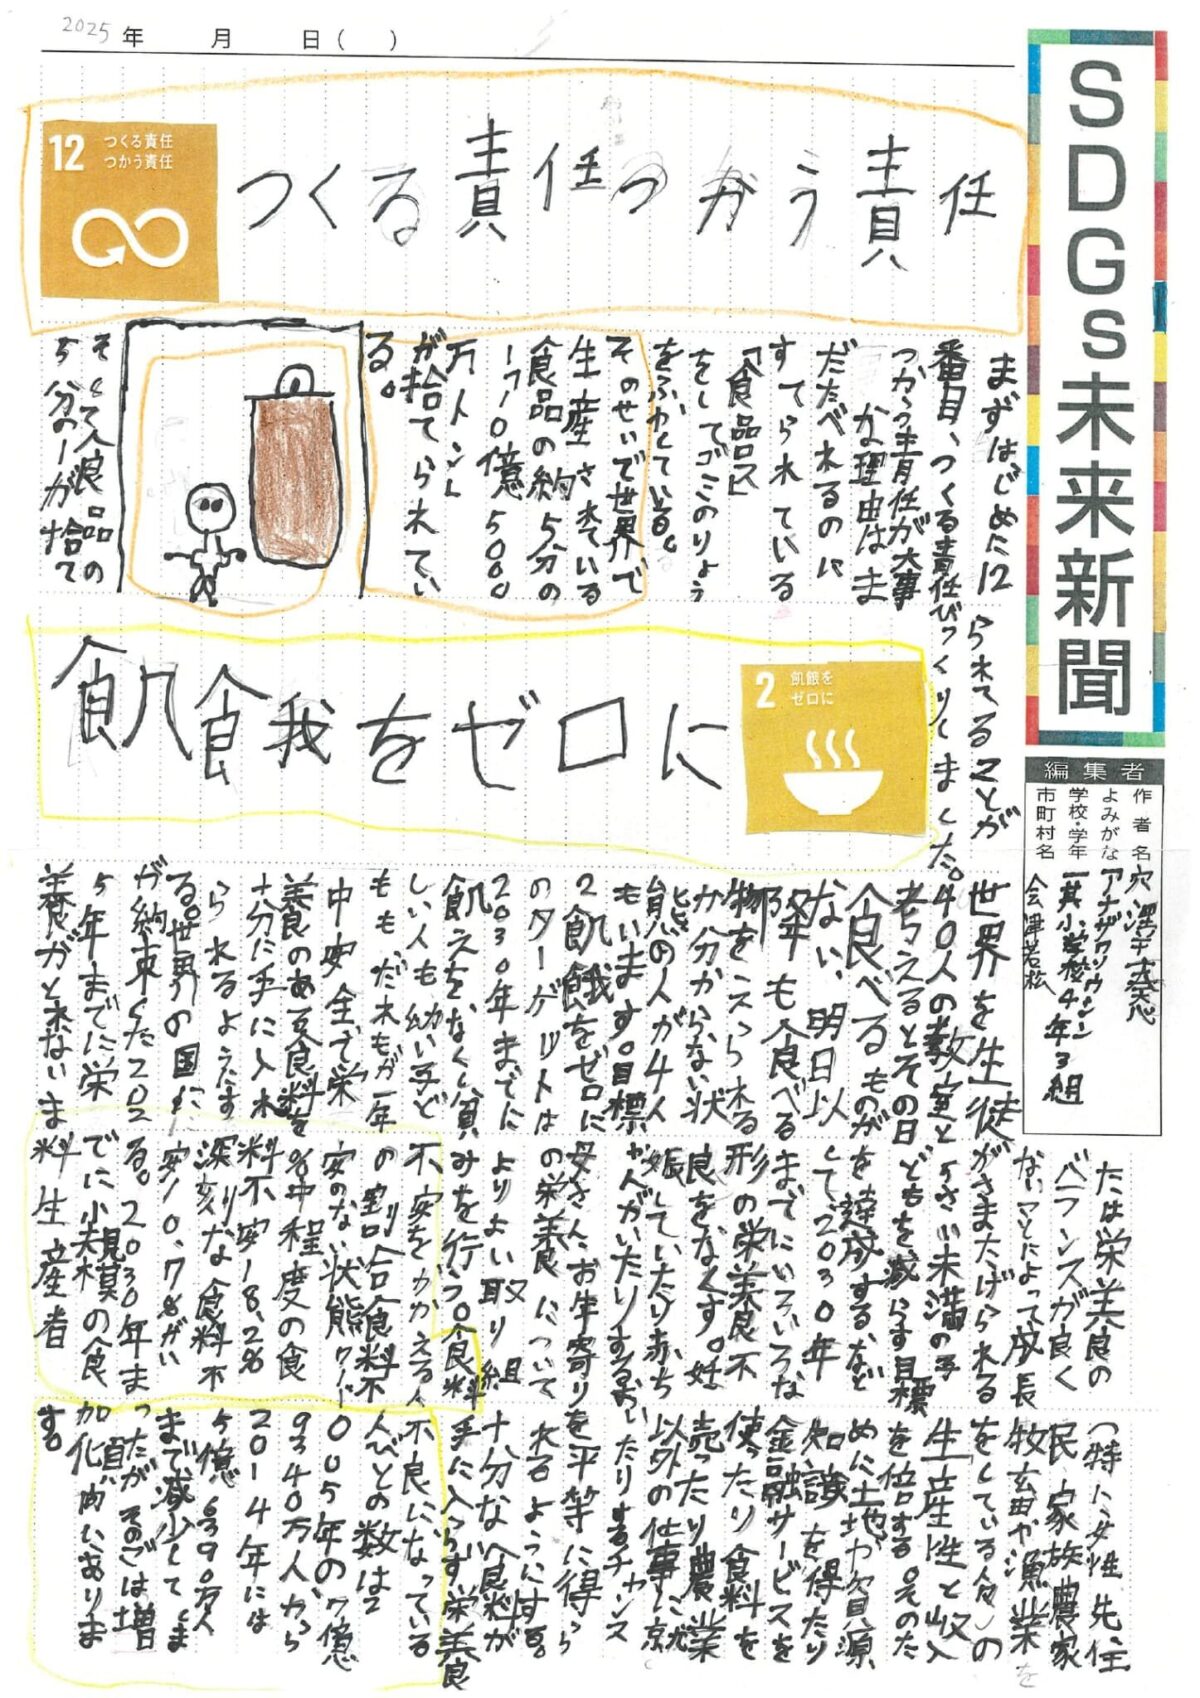 2025年 月 日( )
SDGs未来新聞
編集者
作者名
よみがな
学校・学年 一箕小学校4年3組
市町村名 会津若松
12 つくる責任
つかう責任
つくる責任つかう責任
まずはじめに12
番目、つくる責任
つかう責任が大事
な理由はま
だたべれるのに
すてられている
「食品ロス」
をしてゴミのりょう
をふやしている。
そのせいで世界で
生産されている
食品の約5分の
1「10億5000
万トン」
が捨てられてい
る。
そして食品の
5分の1が捨て
られてることが
びっくりしました。
2 飢餓を
ゼロに
飢餓をゼロに
世界を生徒
40人の教室と
考えるとその日
食べるものが
ない、明日以
降も食べる
物をえられる
か分からない状
態の人が4人
もいます。目標
2飢餓をゼロに
のターゲットは
2030年までに
飢えをなくし貧
しい人も幼い子ど
もも、だれもが一年
中安全で栄
養のある食料を
十分に手に入れ
られるようにす
る。世界の国に
が約束した202
5年までに栄
養がとれないま
たは栄養食の
バランスが良く
ないことによって成長
がさまたげられる
5さい未満の子
どもを減らす目標
を達成するなど
して2030年
までにいろいろな
形の栄養不
良をなくす。妊
娠していたり赤ち
ゃんがいたりするお
母さん、お年寄り
の栄養について
よりよい取り組
みを行う。食料
不安をかかえる人
の割合食料不
安のない状態
%中程度の食
料不安18.2%
深刻な食料不
安10.7%がい
る。2030年ま
でに小規模の食
料生産者
(特に女性、先住
民、家族農家
牧畜や漁業を
をしている人)の
生産性と収入
を倍する。そのた
めに土地や資源、
知識を得たり
金融サービスを
使ったり食料を
売ったり農業
以外の仕事に就
いたりするチャンス
を平等に得ら
れるようにする。
十分な食料が
手に入らず、栄養
不良になっている
人びとの数は2
005年の7億
9340万人から
2014年には
5億6390万人
まで減少してま
ったがそのごは増
加傾向にありま
す。